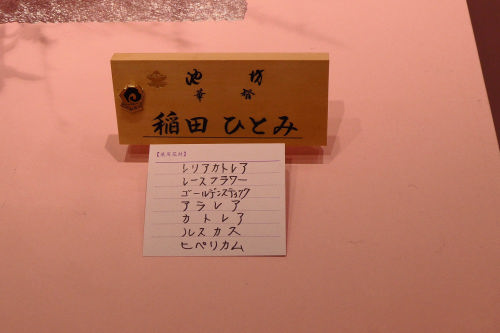 池坊
華裕
稲田 ひとみ
【使用花材】
シリアカトレア
レースフラワー
ゴールデンスティック
アラレア
カトレア
ルスカス
ヒペリカム